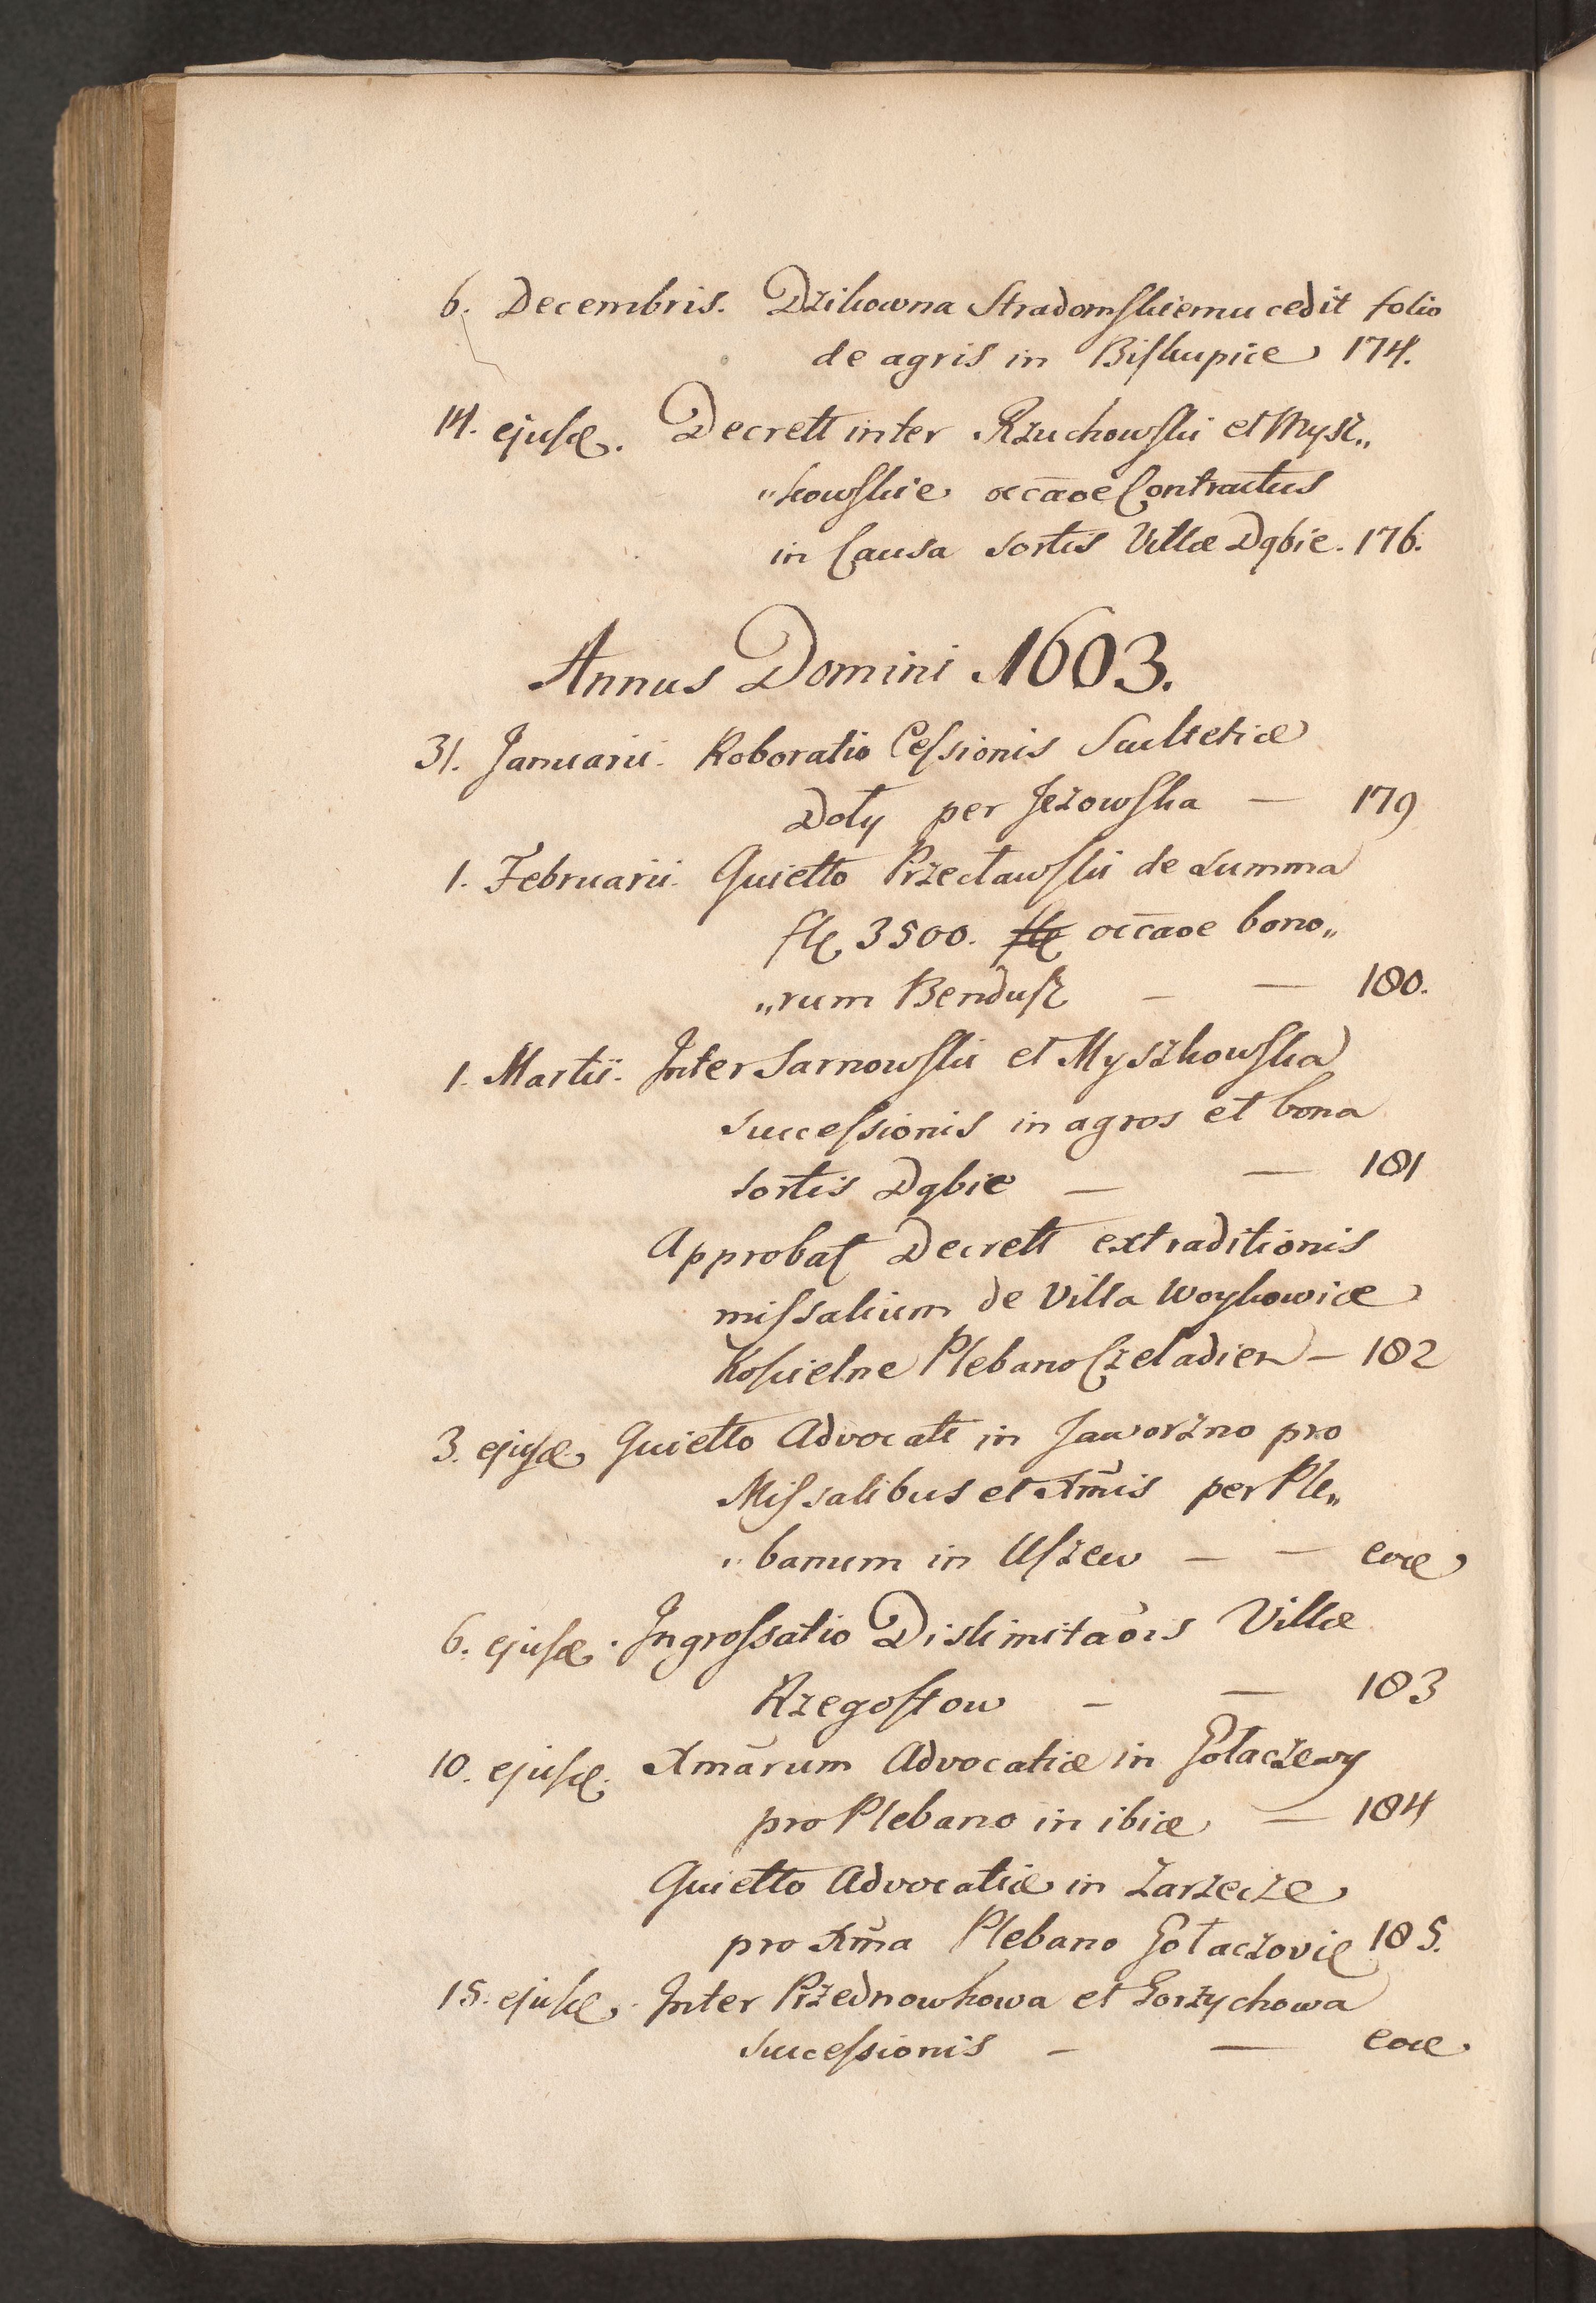 6. Decembris. Dzikowna Stradomskiemu cedit folio
de agris in Biskupice 174.
14. ejusd. Decrett inter Rzuchowski et Mysz„
„kowskie occāōe Contractus
in Causa sortis Villæ Dąbie. 176.
Annus Domini 1603.
31. Januarii. Roboratio Cessionis Scultetiæ
Doły per Jeżowska — 179
1. Februarii. Quietto Przecławski de summa
fl. 3500. occāōe bono„
„rum Bendusz — — 180.
1. Martii. Inter Sarnowski et Myszkowska
successionis in agros et bona
sortis Dąbie — — 181
Approbat Decrett extraditionis
missalium de Villa Woykowice
Koscielne Plebano Czeladien — 182
3. ejusd. Quietto Advocati in Jaworzno pro
Missalibus et Xmis per Ple„
„banum in Uszew — — eod
6. ejusd. Ingrossatio Dislimitāōis Villæ
Rzegostow — — 183
10. ejusd. Xmārum Advocatiæ in Gołaczewy
pro Plebano in ibid — 184
Quietto Advocatiæ in Zarzecze
pro Xma Plebano Gołaczovie 185.
15. ejusd. Inter Przednowkowa et Gorzychowa
successionis — — eod